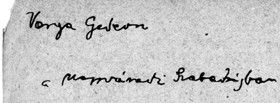 Varga Gedeon
a nagyváradi Szabadságban